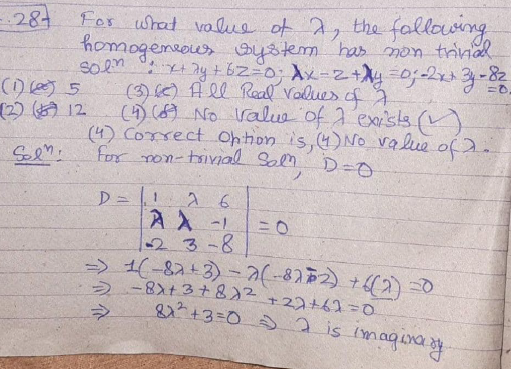 28- For what value of λ, the following
homogeneous system has non trivial
solⁿ : x+λy+6z=0; λx-z+λy=0; -2x+3y-8z=0.
(1) 5 (3) All Real values of λ
(2) 12 (4) No value of λ exists (✓)
(4) Correct Option is, (4) No value of λ.
Solⁿ: For non-trivial Solⁿ, D=0
D = | 1 λ 6
λ λ -1
-2 3 -8 | = 0
⇒ 1(-8λ+3) - λ(-8λ-2) + 6(λ) = 0
⇒ -8λ+3+8λ²+2λ+6λ=0
⇒ 8λ²+3=0 ⇒ λ is imaginary